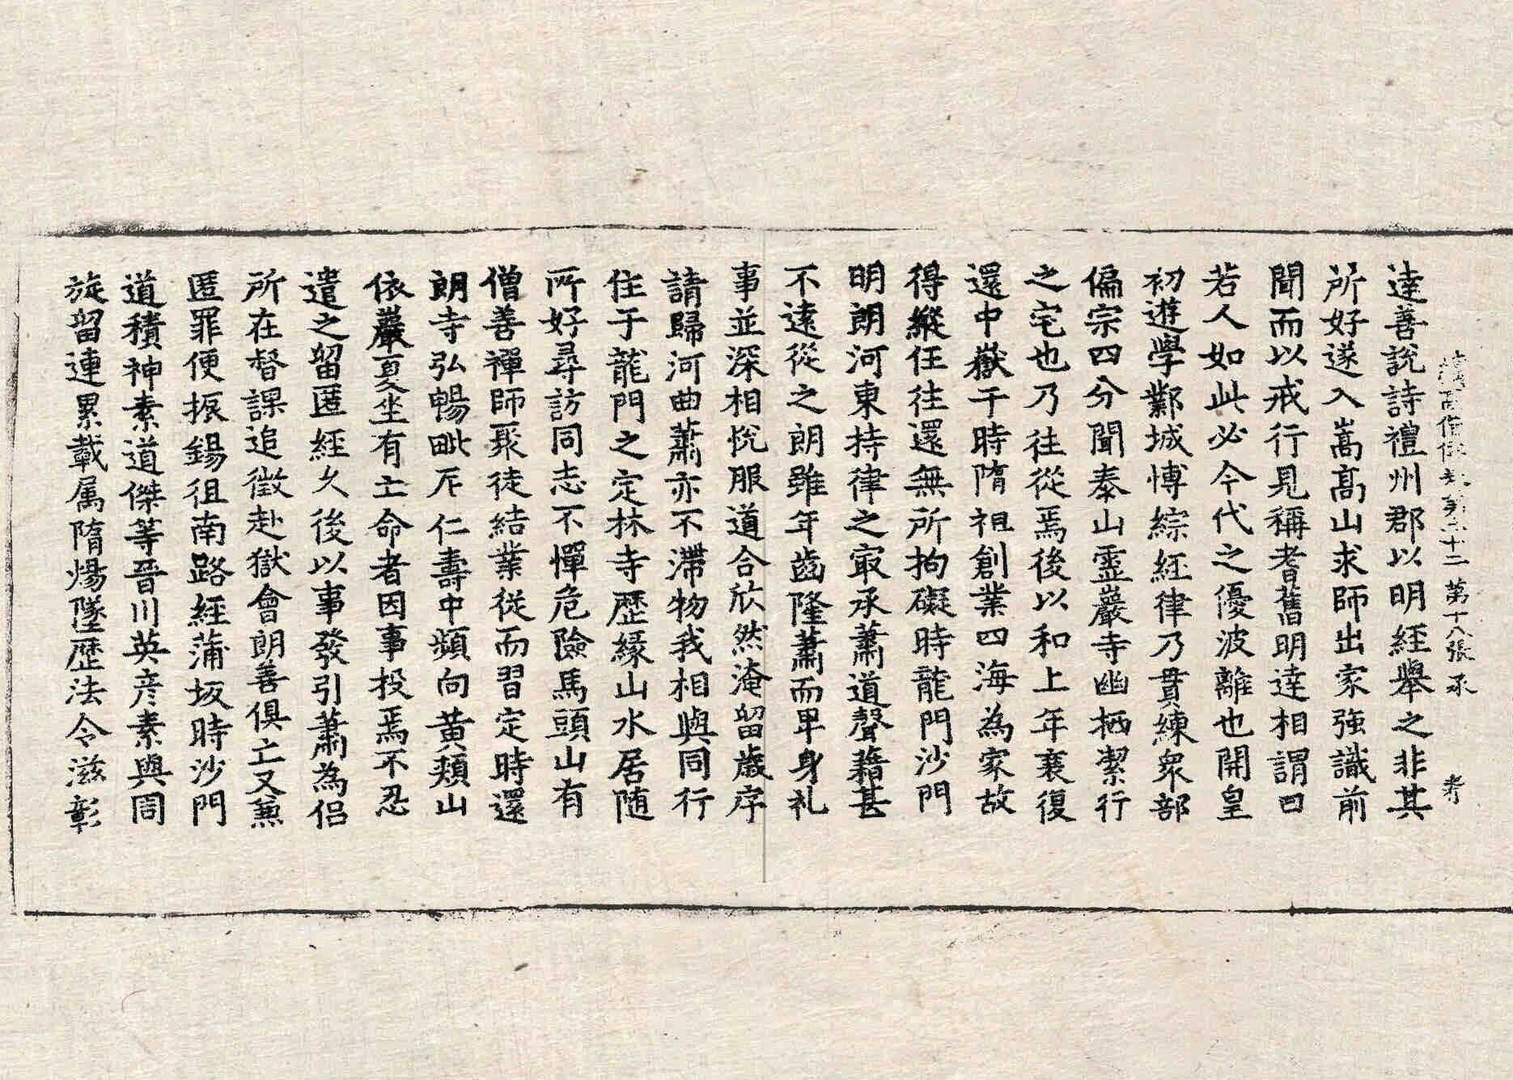 達善說詩禮州郡以明經舉之非其
續高僧傳卷第二十二 第十八張 承
所好遂入嵩高山求師出家強識前
聞而以戒行見稱耆舊明達相謂曰
若人如此必今代之優波離也開皇
初遊學鄴城博綜經律乃貫練眾部
偏宗四分聞泰山靈巖寺幽栖潔行
之宅也乃往從焉後以和上年衰復
還中嶽于時隋祖創業四海為家故
得縱任往還無所拘礙時龍門沙門
明朗河東持律之寂承蕭道聲藉甚
不遠從之朗雖年齒隆蕭而卑身礼
事並深相悅服道合欣然淹留歲序
請歸河曲蕭亦不滯物我相與同行
住于龍門之定林寺歷緣山水居随
所好尋訪同志不憚危險馬頭山有
僧善禪師聚徒結業從而習定時還
朗寺弘暢毗尼仁壽中頻向黃頰山
依巖夏坐有亡命者因事投焉不忍
遣之留匿經久後以事發引蕭為侶
所在督課追徵赴獄會朗善俱亡又兼
匿罪便振錫徂南路經蒲坂時沙門
道積神素道傑等晉川英彥素與周
旋留連累載属隋煬墜歷法令滋彰